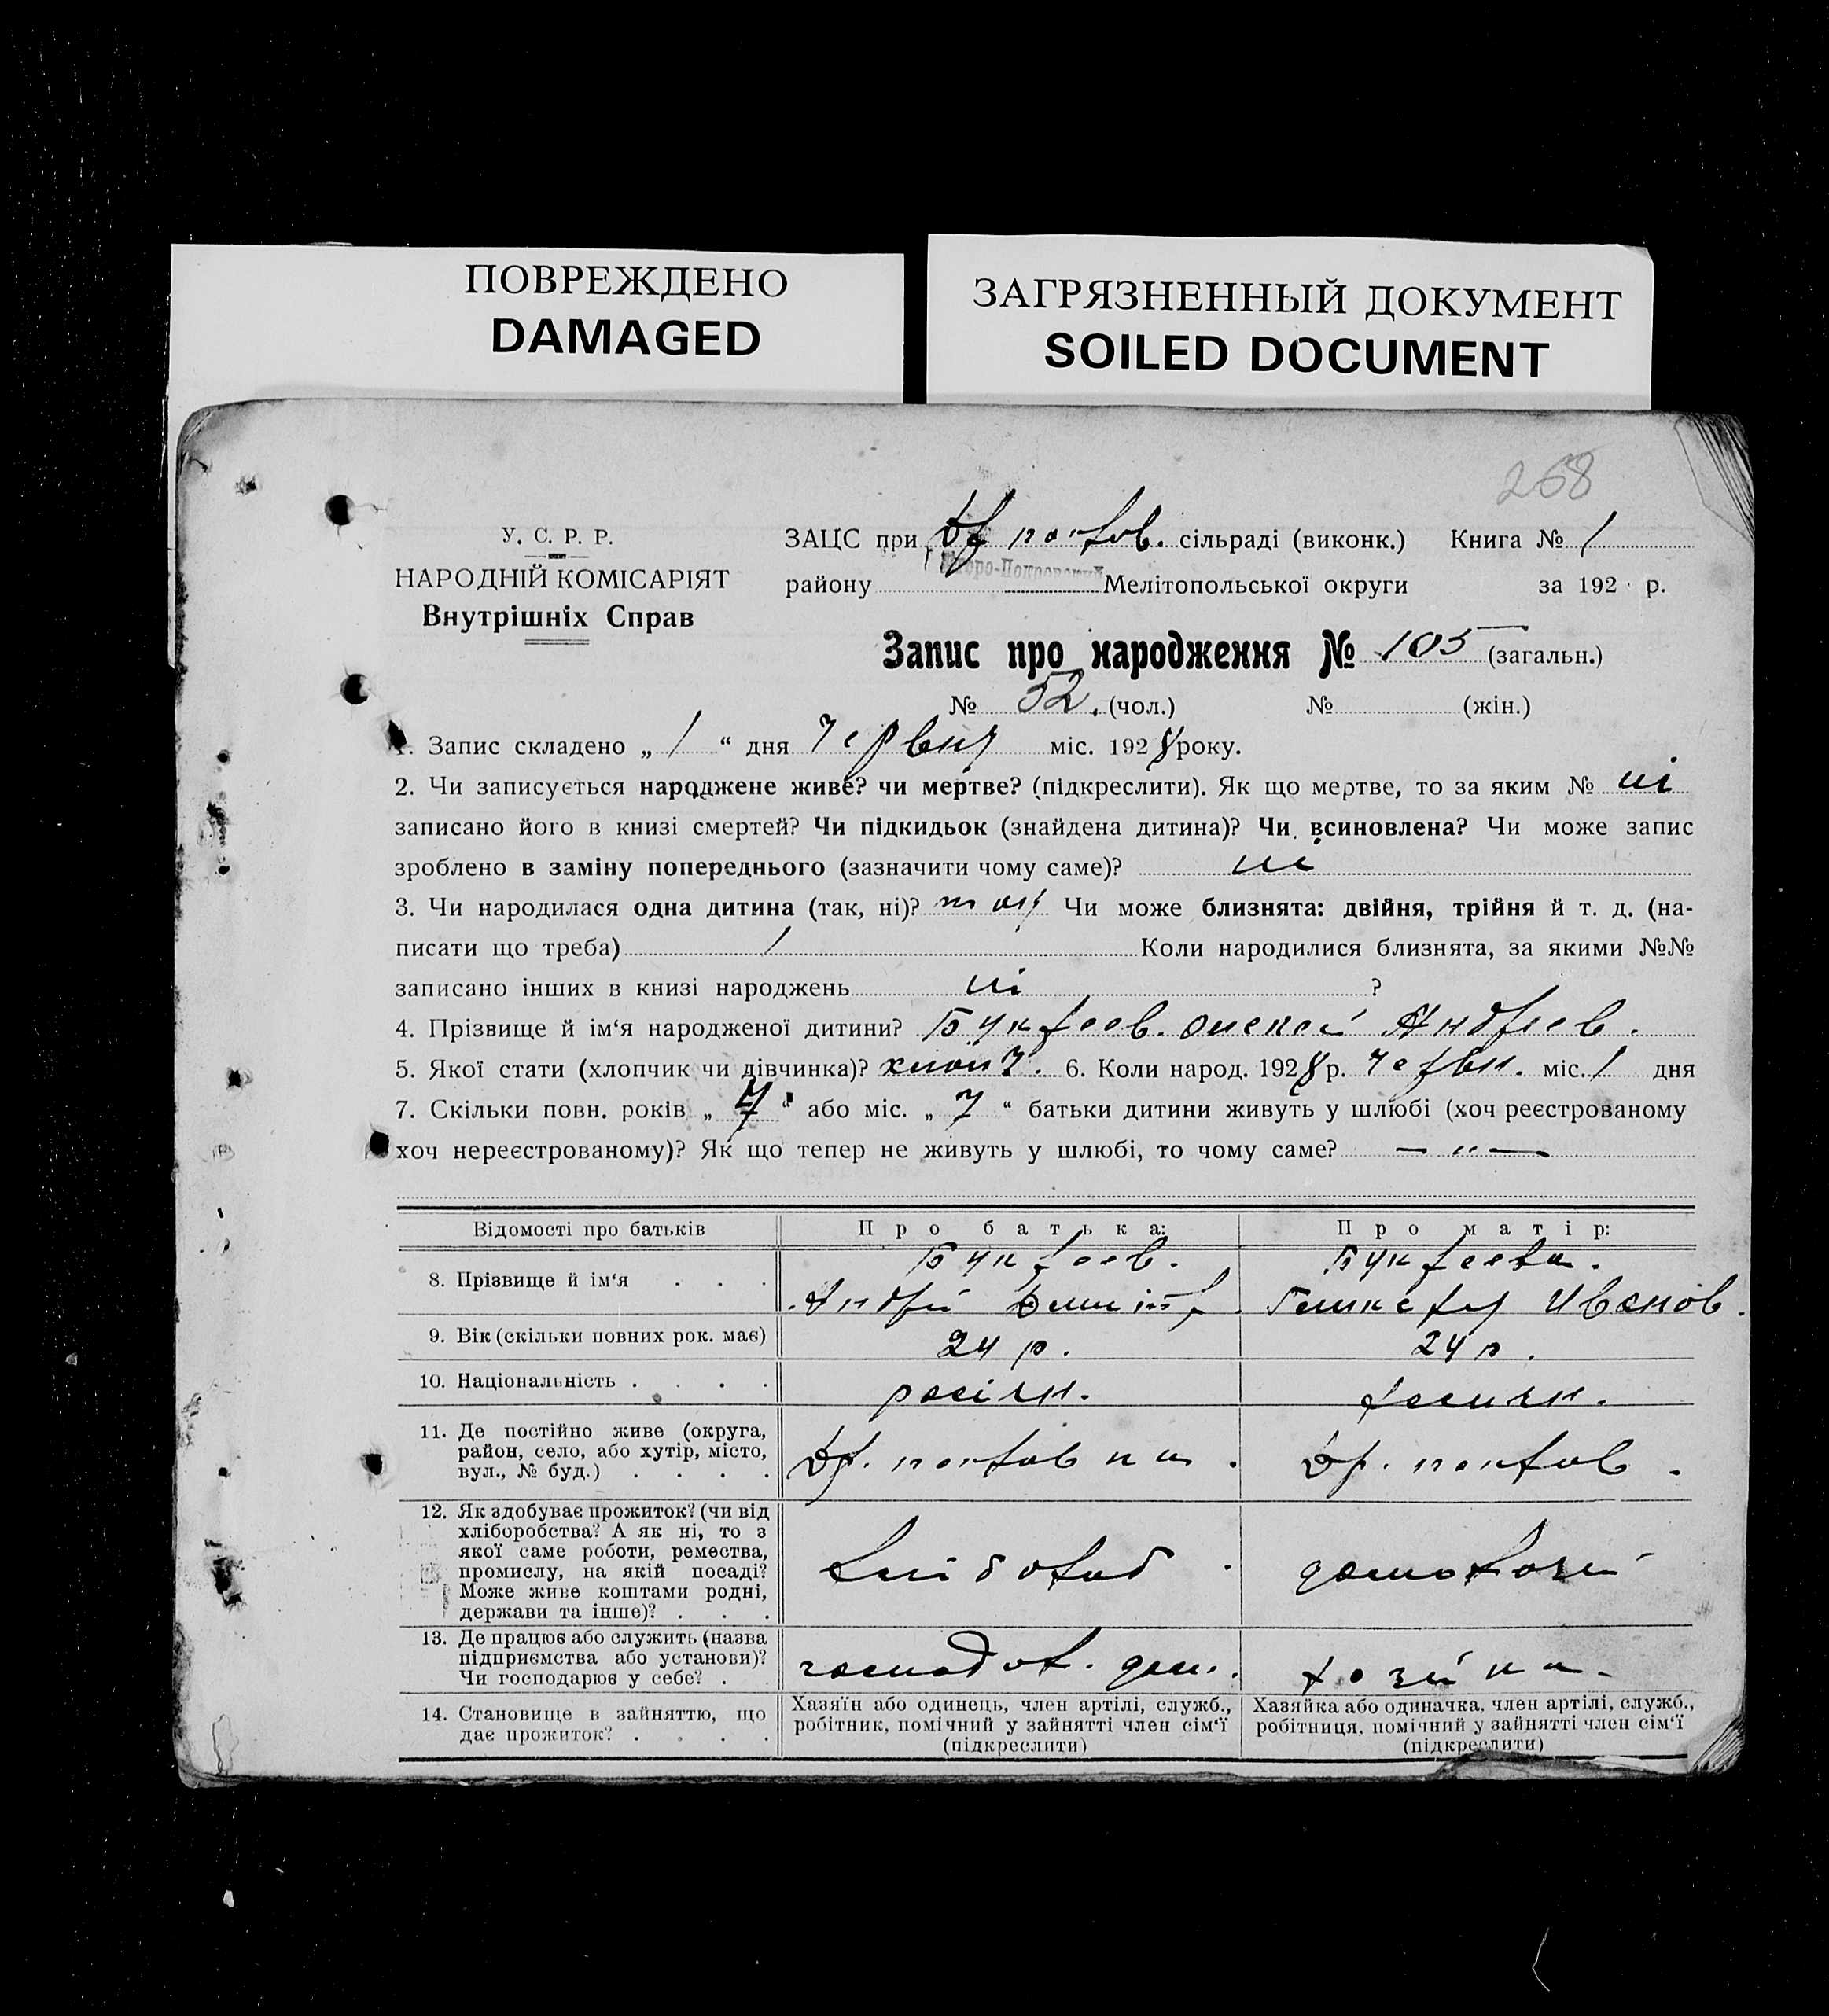 ПОВРЕЖДЕНО
DAMAGED
ЗАГРЯЗНЕННЫЙ ДОКУМЕНТ
SOILED DOCUMENT
268
У. С. Р. Р.
НАРОДНІЙ КОМІСАРІЯТ
Внутрішніх Справ
ЗАЦС при сільраді (виконк.) Книга № 1
району Мелітопольської округи за 192 р.
Запис про народження № 105 (загальн.)
№ 52. (чол.) № (жін.)
1. Запис складено „ 1 “ дня червня міс. 1928 року.
2. Чи записується народжене живе? чи мертве? (підкреслити). Як що мертве, то за яким № ні
записано його в книзі смертей? Чи підкидьок (знайдена дитина)? Чи всиновлена? Чи може запис
зроблено в заміну попереднього (зазначити чому саме)? ні
3. Чи народилася одна дитина (так, ні)? Чи може близнята: двійня, трійня й т. д. (на-
писати що треба) / Коли народилися близнята, за якими №№
записано інших в книзі народжень ні ?
4. Прізвище й ім‘я народженої дитини? Букреев. Олексей Андреев.
5. Якої стати (хлопчик чи дівчинка)? хлопч. 6. Коли народ. 1928 р. червн. міс. 1 дня
7. Скільки повн. років „ “ або міс. „ 7 “ батьки дитини живуть у шлюбі (хоч реєстрованому
хоч нереєстрованому)? Як що тепер не живуть у шлюбі, то чому саме? — " —
Відомості про батьків Про батька: Про матір:
8. Прізвище й ім‘я . . . Букреев. Букреева.
Андрій Дмитр. Іванов.
9. Вік (скільки повних рок. має) 24 р. 24 р.
10. Національність . . . . росіян. росиян.
11. Де постійно живе (округа,
район, село, або хутір, місто,
вул., № буд.) . . . .
12. Як здобуває прожиток? (чи від
хліборобства? А як ні, то з
якої саме роботи, ремества,
промислу, на якій посаді?
Може живе коштами родні,
держави та інше)? . . .
хлібороб домохозяй
13. Де працює або служить (назва
підприємства або установи)?
Чи господарює у себе? .
господар. дом. хозяйка.
14. Становище в зайняттю, що
дає прожиток? . . . .
Хазяїн або одинець, член артілі, служб.,
робітник, помічний у зайнятті член сім‘ї
(підкреслити)
Хазяйка або одиначка, член артілі, служб.,
робітниця, помічний у зайнятті член сім‘ї
(підкреслити)